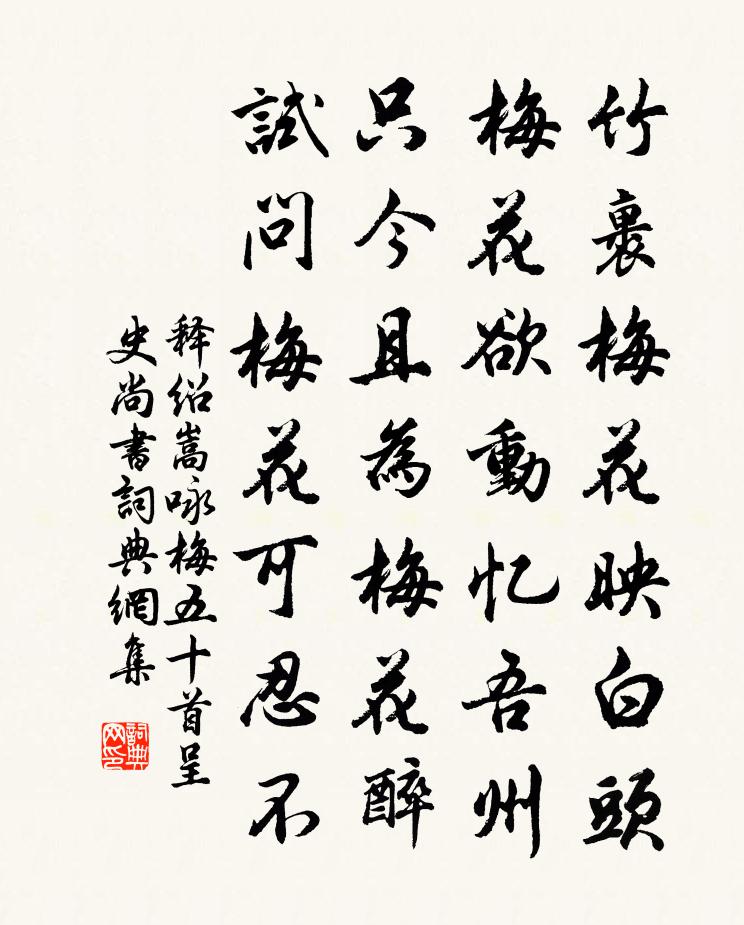 竹裏梅花映白頭
梅花欲動忆吾州
只今且為梅花醉
試問梅花可忍不
释绍嵩咏梅五十首呈
史尚書詞典網集
詞典網印